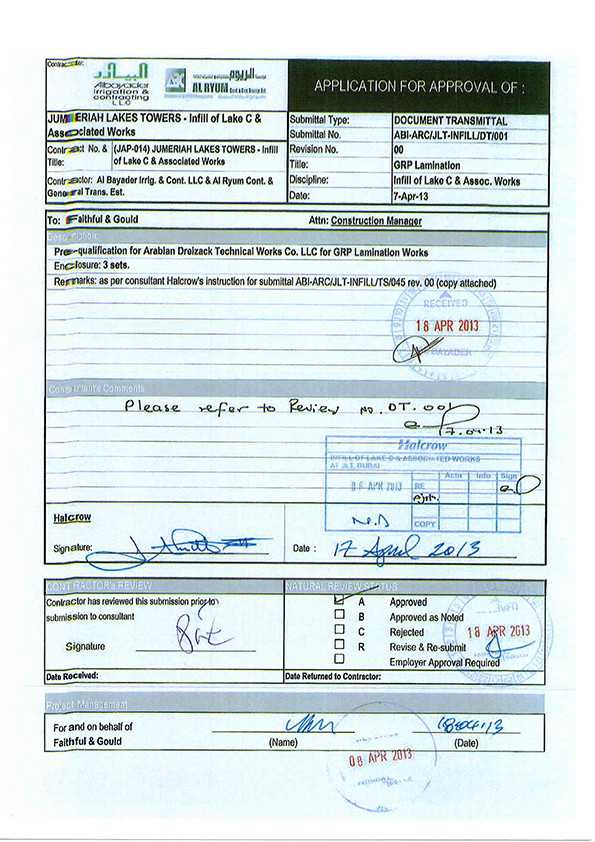 Contractor:
البيادر
Albayader
irrigation &
contracting
LLC
الريوم
AL RYUM
APPLICATION FOR APPROVAL OF :
JUMERIAH LAKES TOWERS - Infill of Lake C &
Associated Works
Contract No. &
Title:
(JAP-014) JUMERIAH LAKES TOWERS - Infill
of Lake C & Associated Works
Contractor: Al Bayader Irrig. & Cont. LLC & Al Ryum Cont. &
General Trans. Est.
Submittal Type: DOCUMENT TRANSMITTAL
Submittal No. ABI-ARC/JLT-INFILL/DT/001
Revision No. 00
Title: GRP Lamination
Discipline: Infill of Lake C & Assoc. Works
Date: 7-Apr-13
To: Faithful & Gould Attn: Construction Manager
Description:
Pre-qualification for Arabian Drolzack Technical Works Co. LLC for GRP Lamination Works
Enclosure: 3 sets.
Remarks: as per consultant Halcrow's instruction for submittal ABI-ARC/JLT-INFILL/TS/045 rev. 00 (copy attached)
RECEIVED
18 APR 2013
BAYADER
Consultant's Comments
Please refer to Review no. DT. 001
17.04.13
Halcrow
INFILL OF LAKE C & ASSOCIATED WORKS
AT JLT, DUBAI
Actn Info Sign
08 APR 2013 RE
COPY
Halcrow
Signature:
Date : 17 April 2013
CONTRACTOR's REVIEW
Contractor has reviewed this submission prior to
submission to consultant
Signature
Date Received:
NATURAL REVIEW STATUS
A Approved
B Approved as Noted
C Rejected
R Revise & Re-submit
Employer Approval Required
18 APR 2013
Date Returned to Contractor:
Project Management
For and on behalf of
Faithful & Gould
(Name)
(Date)
08 APR 2013